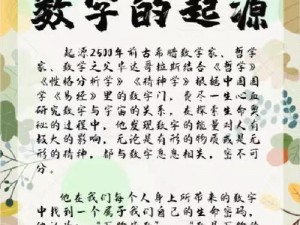 数字的起源
起源2500年前古希腊数学家、哲学
家、数字之父毕达哥拉斯结合《哲学》
《性格分析学》《精神学》根据中国国
学《易经》里的数字门，费尽一生心血
研究数字与宇宙的关系，在探索生命奥
秘的过程中，他发现数字的能量对人有
极大的影响，无论是有形的物质或是无
形的精神，都与数字息息相关，密不可
分。
他在我们每个人身上所带来的数字
中找到一个属于我们自己的生命密码，